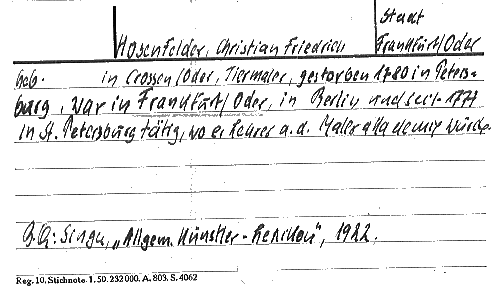 Stadt
Hosenfelder, Christian Friedrich
Frankfurt/Oder
geb. in Crossen/Oder, Tiermaler, gestorben 1780 in Peters-
burg, war in Frankfurt/Oder, in Berlin und seit 1771
in St. Petersburg tätig, wo er Lehrer a.d. Malerakademie wurde.
Q.: Singer, „Allgem. Künstler-Lexikon", 1922.
Reg. 10. Stichnote. 1. 50. 232 000. A. 803. S. 4062